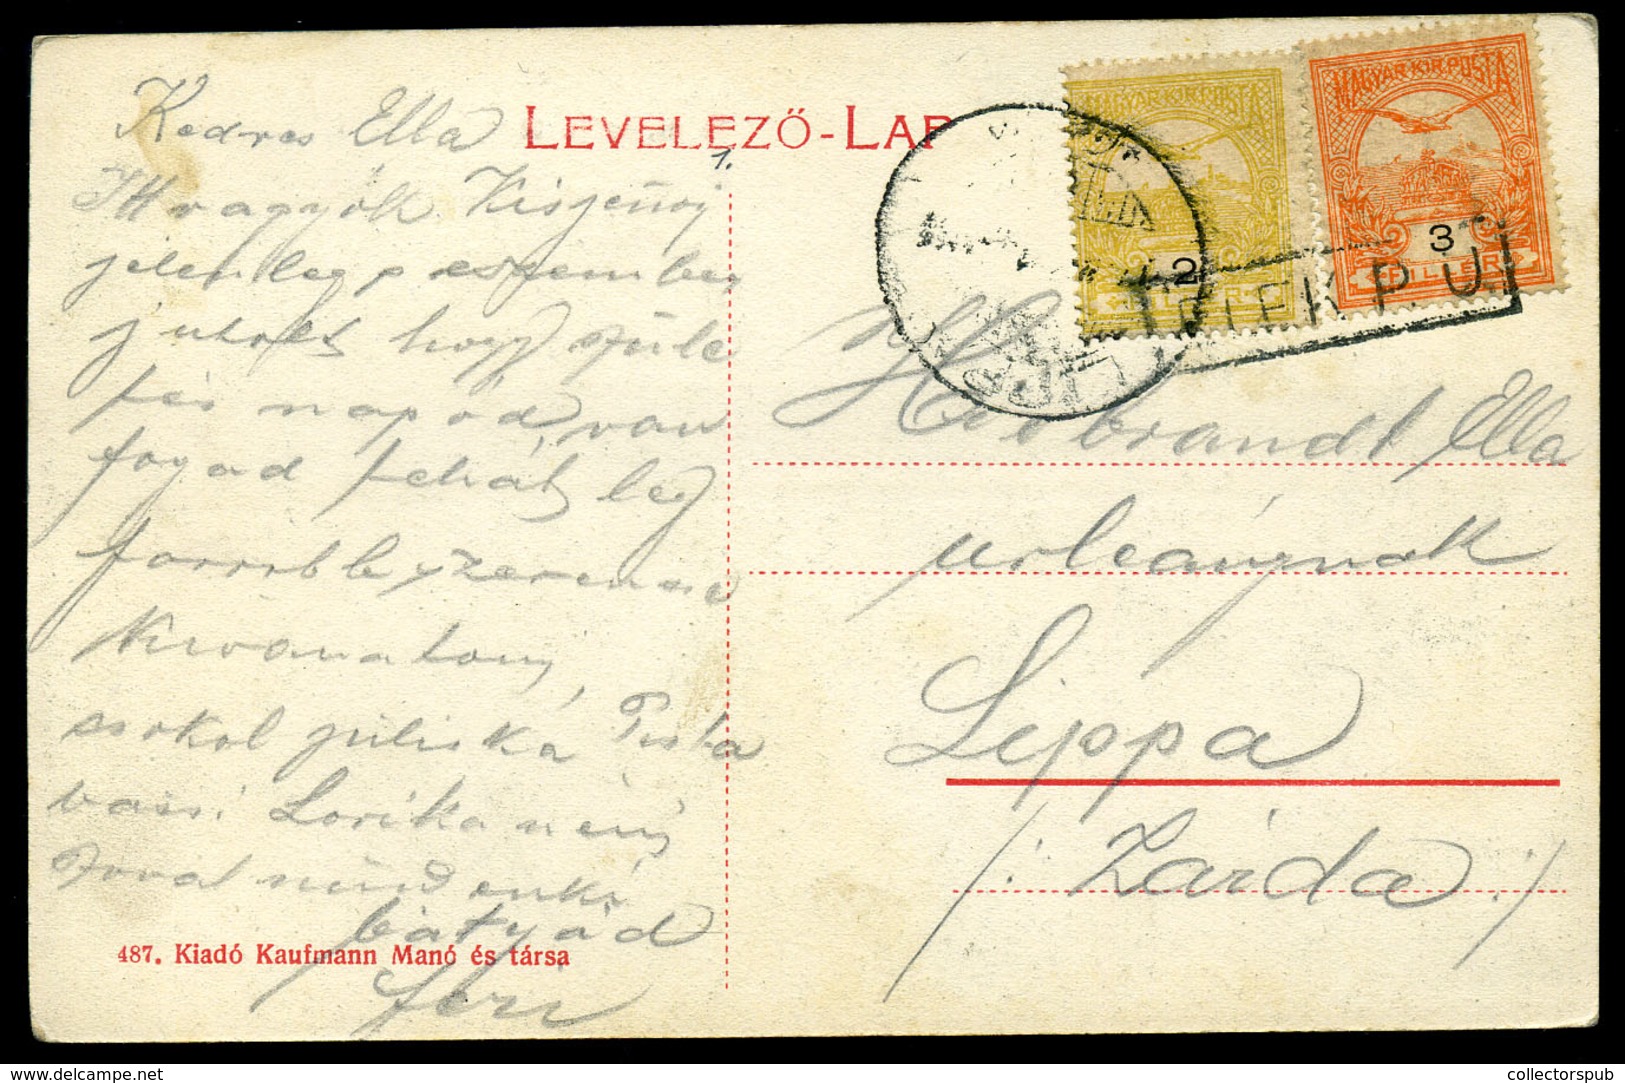 LEVELEZŐ-LAP
1.
MAGYAR KIR. POSTA
2
FILLÉR
MAGYAR KIR. POSTA
3
FILLÉR
P.U.
Kedves Ella
Itt vagyok Kisjenőn
jelenleg eszembe
jutott hogy szüle
tés napod van
fogad tehát leg
forróbb szerencse
kivonatom
csokol juliska Pista
bácsi Lorika néni
szoval mindenki
bátyád
feri
Ella
urleánynak
Lippa
/: Zárda :/
487. Kiadó Kaufmann Manó és társa
delcampe.net
collectorspub